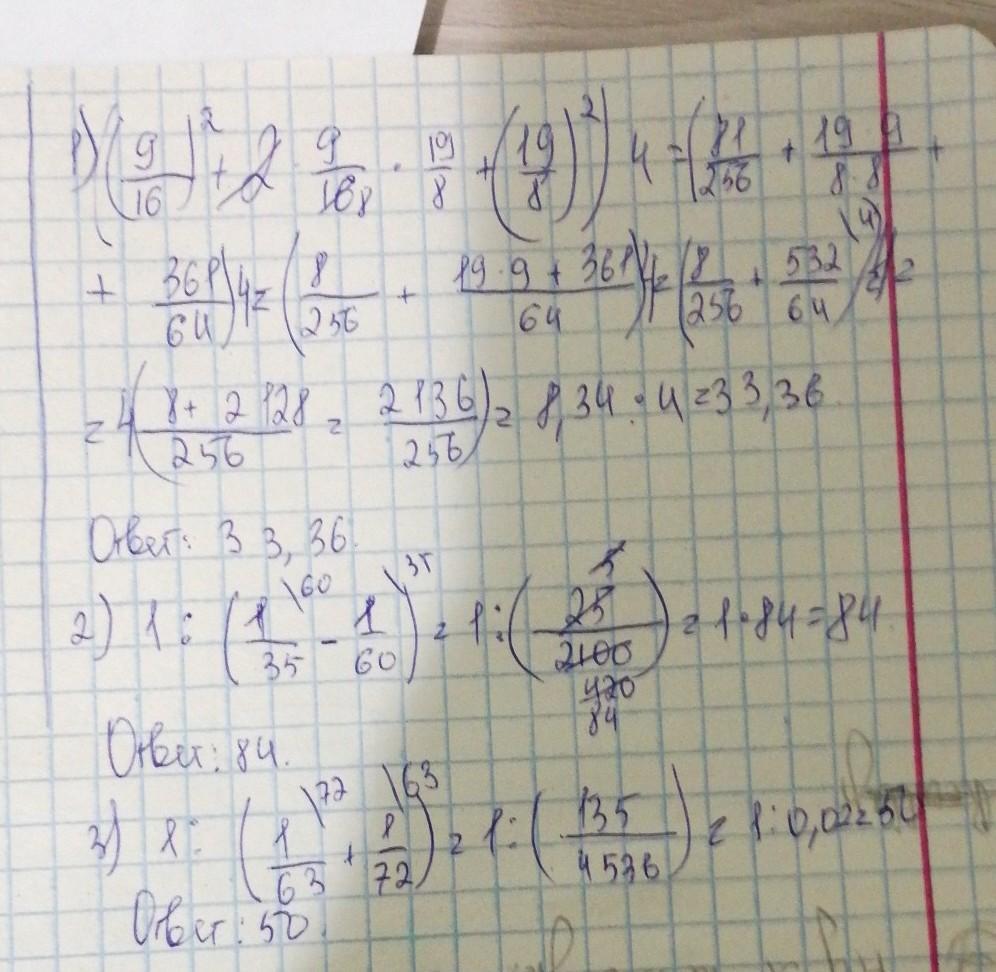 1) ((9/16)² + 2 · 9/168 · 19/8 + (19/8)²) 4 = (81/256 + 19·9/8·8 +
+ 361/64) 4 = (8/256 + 19·9+361/64) 4 = (8/256 + 532/64 \4) 4 =
= 4(8+2128/256 = 2136/256) = 8,34 · 4 = 33,36.
Ответ: 33,36.
2) 1 : (1/35 \60 - 1/60 \35) = 1 : (25/2100 5 420 84) = 1 · 84 = 84.
Ответ: 84.
3) 1 : (1/63 \72 + 1/72 \63) = 1 : (135/4536) = 1 : 0,02 = 50
Ответ: 50.